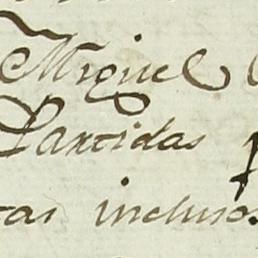 Miguel
Partidas
tas incluso